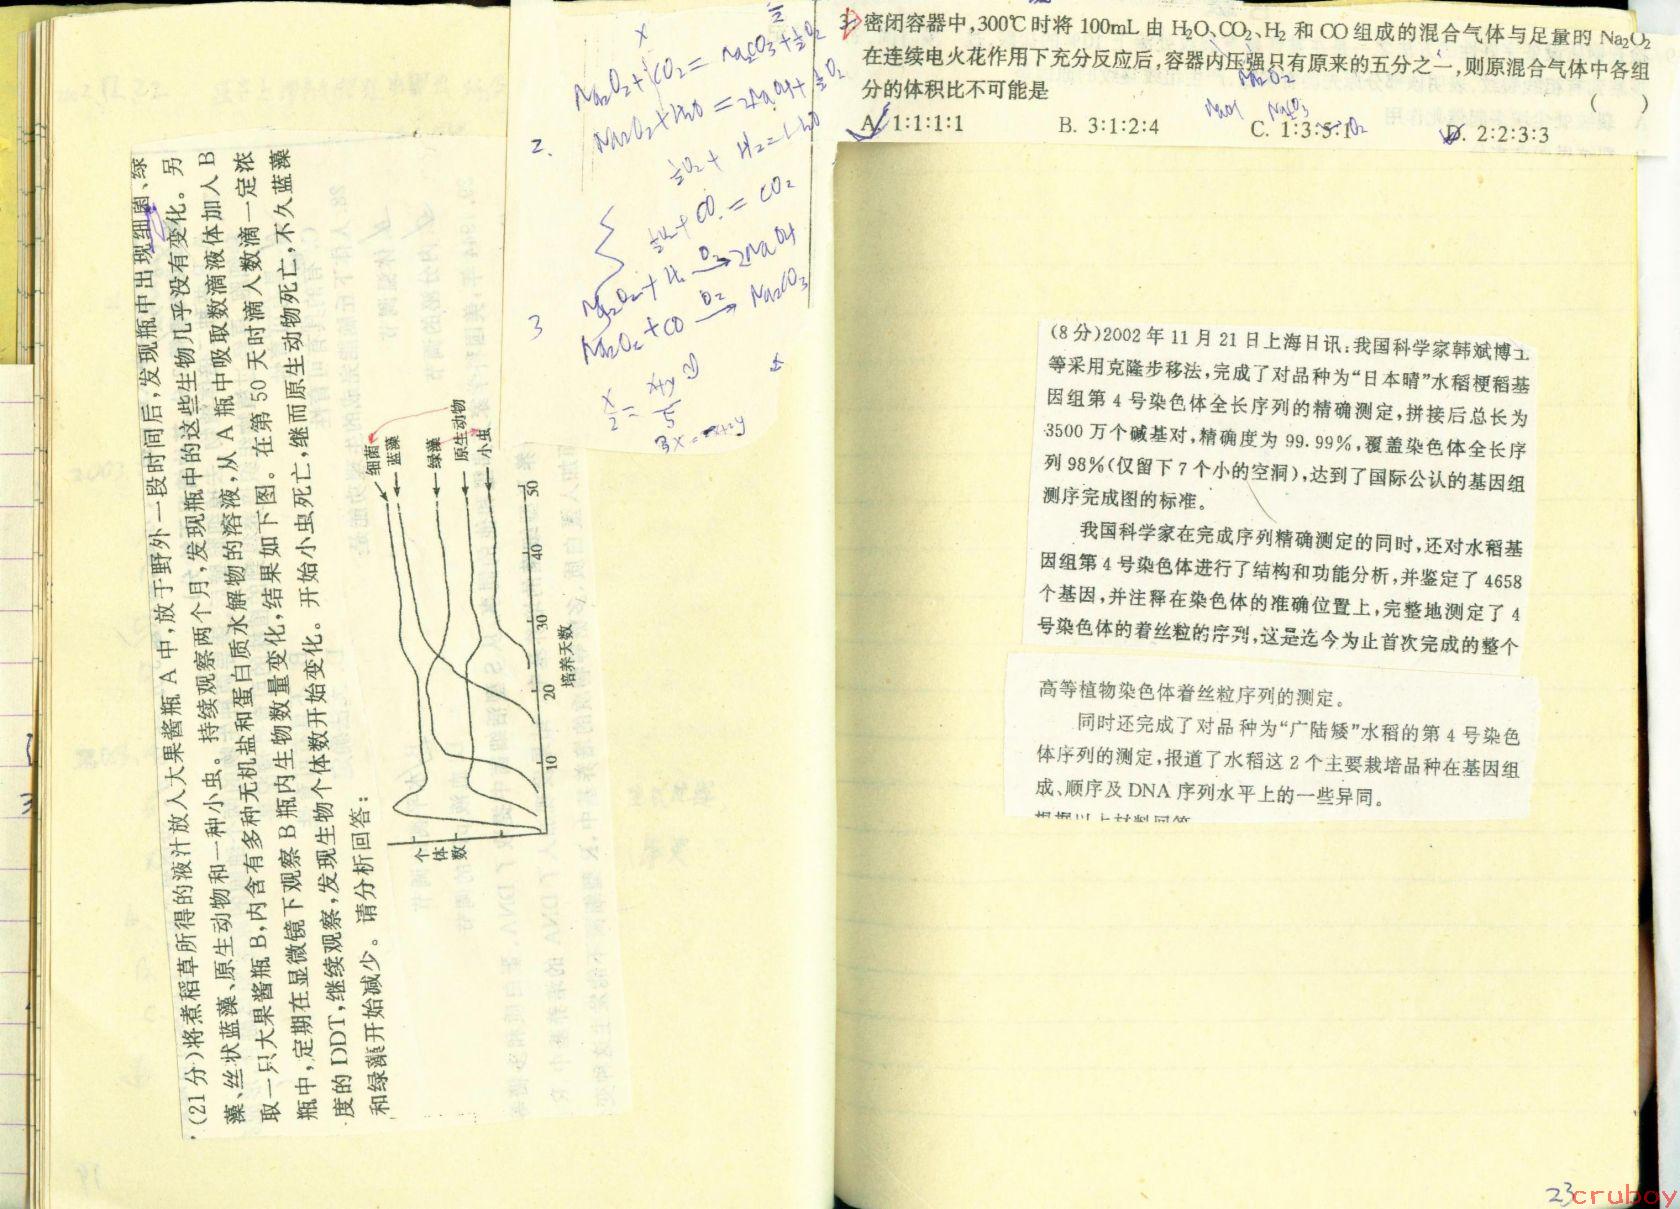 (21分)将煮稻草所得的液汁放入大果酱瓶A中,放于野外一段时间后,发现瓶中出现细菌、绿
藻、丝状蓝藻、原生动物和一种小虫。持续观察两个月,发现瓶中的这些生物几乎没有变化。另
取一只大果酱瓶B,内含有多种无机盐和蛋白质水解物的溶液,从A瓶中吸取数滴液体加入B
瓶中,定期在显微镜下观察B瓶内生物数量变化,结果如下图。在第50天时滴入数滴一定浓
度的DDT,继续观察,发现生物个体数开始变化。开始小虫死亡,继而原生动物死亡,不久蓝藻
和绿藻开始减少。请分析回答:
个体数
细菌
蓝藻
绿藻
原生动物
小虫
10
20
30
40
50
培养天数
Na₂O₂+CO₂=Na₂CO₃+½O₂
2.
Na₂O₂+H₂O=2NaOH+½O₂
½O₂+H₂=H₂O
½O₂+CO=CO₂
Na₂O₂+H₂ O₂→ 2NaOH
3
Na₂O₂+CO O₂→ Na₂CO₃
3. 密闭容器中,300℃时将100mL由H₂O、CO₂、H₂和CO组成的混合气体与足量的Na₂O₂
在连续电火花作用下充分反应后,容器内压强只有原来的五分之一,则原混合气体中各组
分的体积比不可能是 ( )
Na₂O₂
NaOH Na₂CO₃ O₂
A. 1:1:1:1 B. 3:1:2:4 C. 1:3:5:1 D. 2:2:3:3
(8分)2002年11月21日上海日讯:我国科学家韩斌博士
等采用克隆步移法,完成了对品种为“日本晴”水稻梗稻基
因组第4号染色体全长序列的精确测定,拼接后总长为
3500万个碱基对,精确度为99.99%,覆盖染色体全长序
列98%(仅留下7个小的空洞),达到了国际公认的基因组
测序完成图的标准。
我国科学家在完成序列精确测定的同时,还对水稻基
因组第4号染色体进行了结构和功能分析,并鉴定了4658
个基因,并注释在染色体的准确位置上,完整地测定了4
号染色体的着丝粒的序列,这是迄今为止首次完成的整个
高等植物染色体着丝粒序列的测定。
同时还完成了对品种为“广陆矮”水稻的第4号染色
体序列的测定,报道了水稻这2个主要栽培品种在基因组
成、顺序及DNA序列水平上的一些异同。
根据以上材料回答
23
cruboy